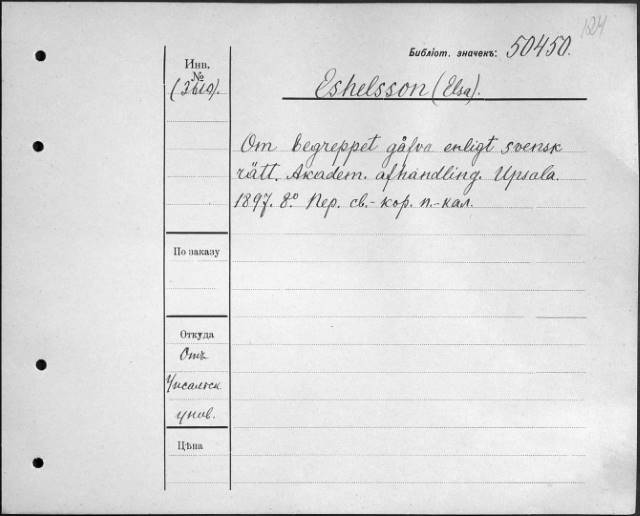 124
Библіот. значекъ: 50450.
Инв.
№
(3610).
Eshelsson (Elsa).
Om begreppet gåfva enligt svensk
rätt. Akadem. afhandling. Upsala.
1897. 8º Пер. св.-кор. п.-кал.
По заказу
Откуда
Отъ
Упсальск
унив.
Цѣна